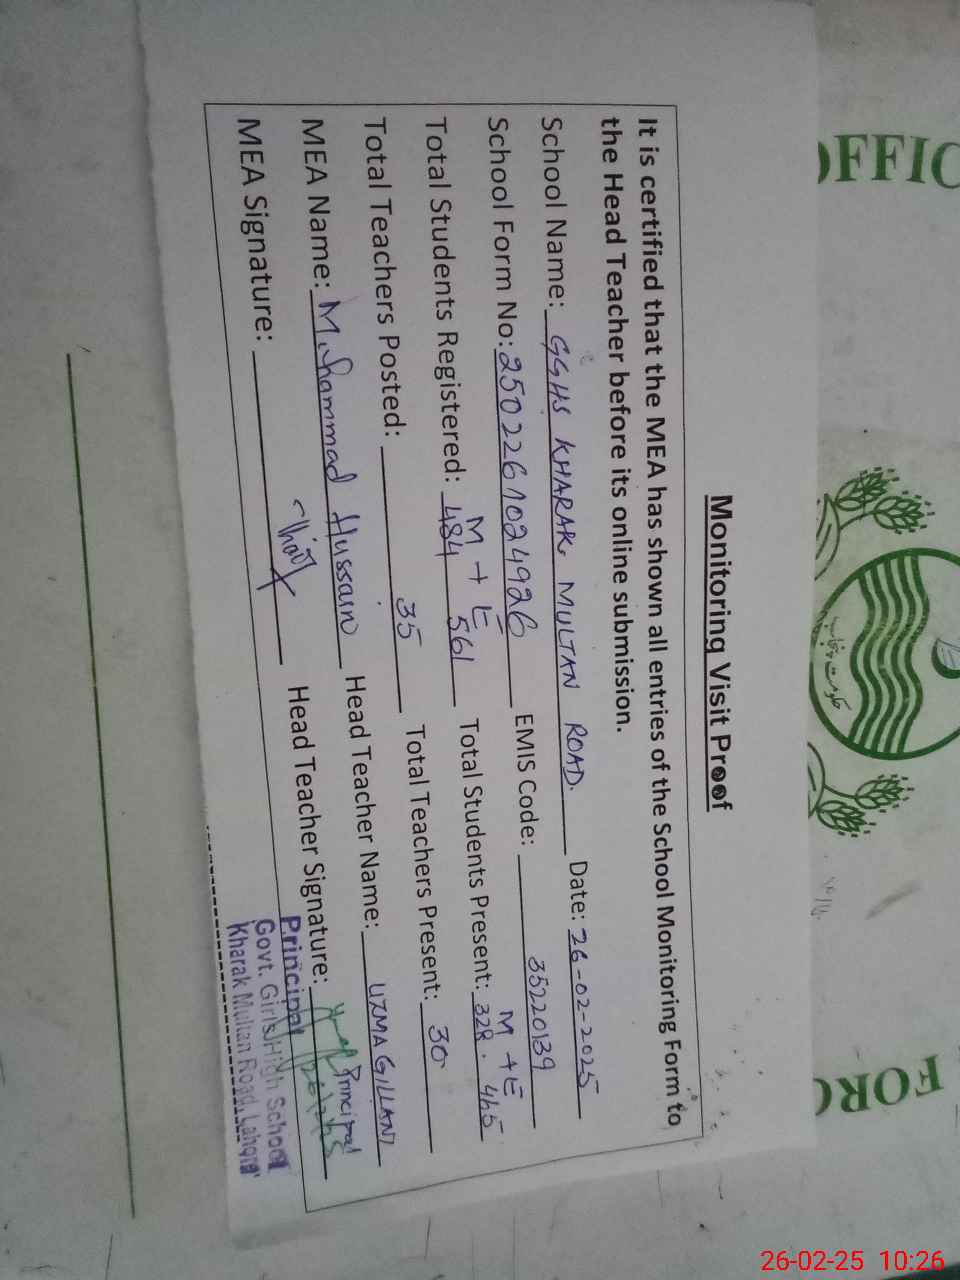 Monitoring Visit Proof
It is certified that the MEA has shown all entries of the School Monitoring Form to
the Head Teacher before its online submission.
School Name: GGHS KHARAK MULTAN ROAD. Date: 26-02-2025
School Form No: 2502261024926 EMIS Code: 35220139
M + E M + E
Total Students Registered: 484 561 Total Students Present: 328. 465
Total Teachers Posted: 35 Total Teachers Present: 30
MEA Name: Muhammad Hussain Head Teacher Name: UZMA GILLANI
MEA Signature: Head Teacher Signature: Principal
Principal
Govt. Girls High School
Kharak Multan Road, Lahore
OFFIC
FORC
حکومت پنجاب
26-02-25 10:26